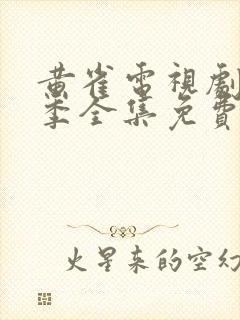 黄雀電視劇
季全集免費
火星来的空幻